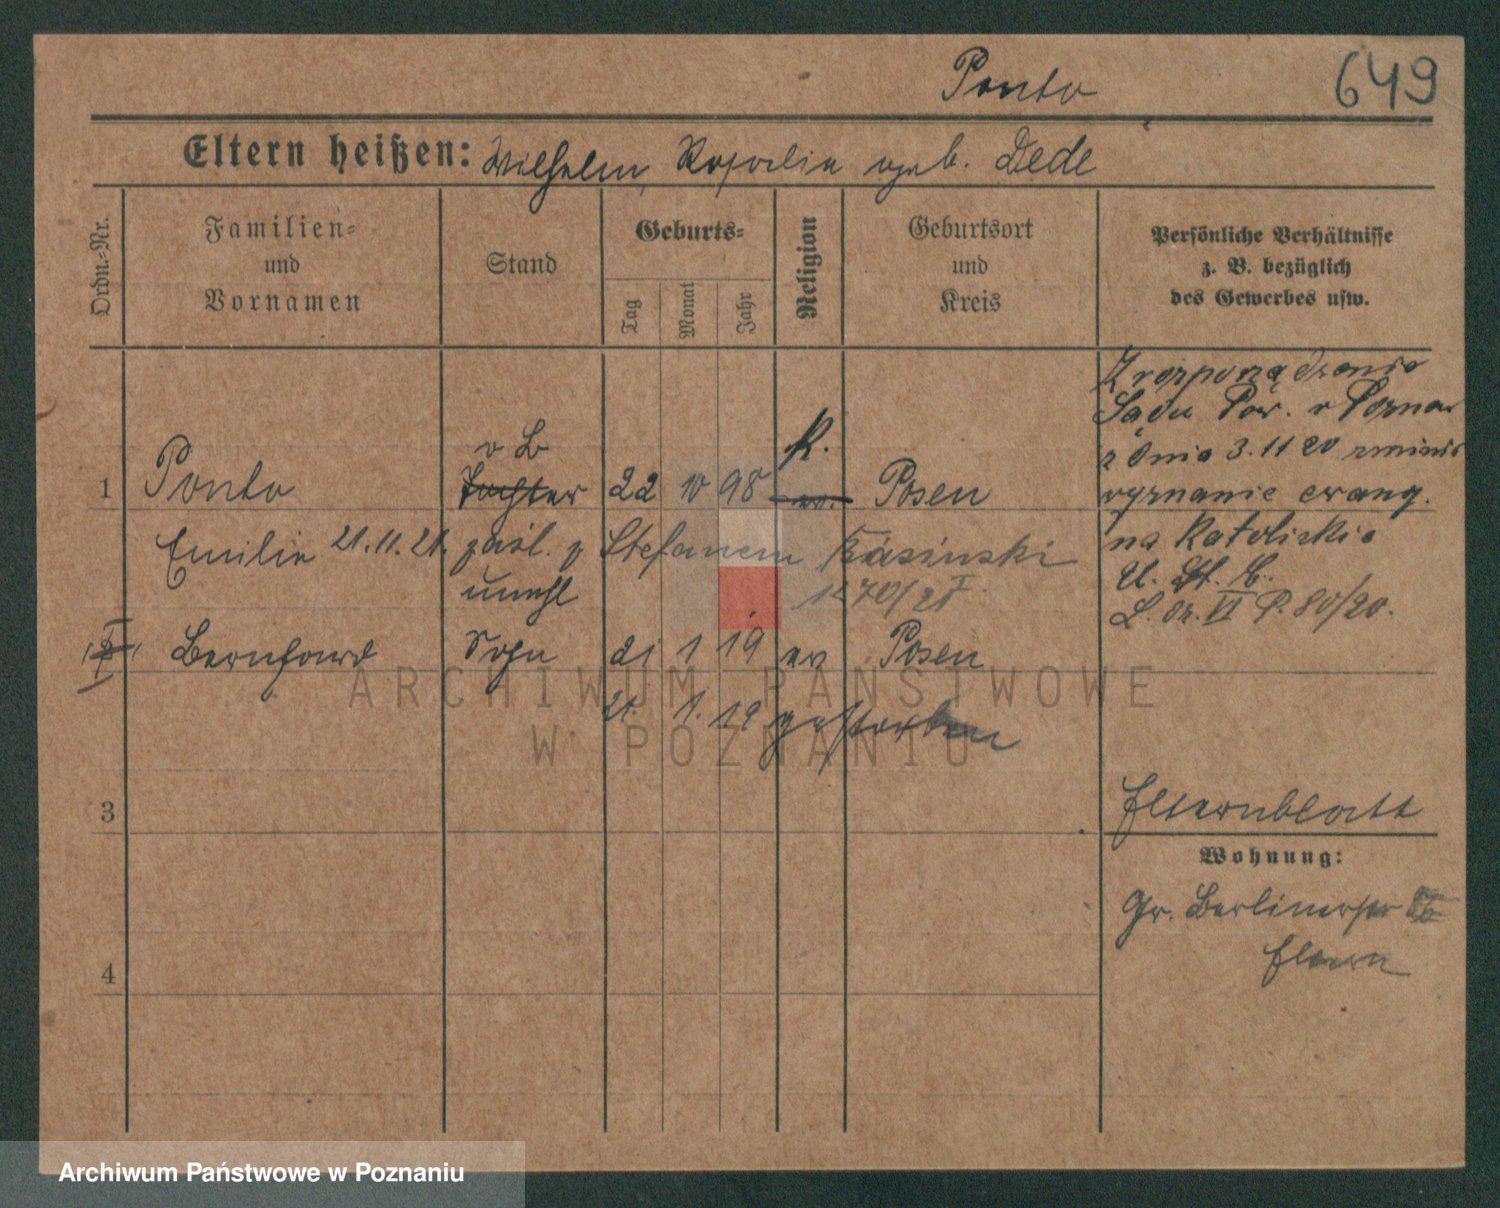 Ponto
649
Eltern heißen: Wilhelm, Rosalie geb. Dede
Ordn.-Nr.
Familien-
und
Vornamen
Stand
Geburts-
Tag
Monat
Jahr
Religion
Geburtsort
und
Kreis
Persönliche Verhältnisse
z. B. bezüglich
des Gewerbes usw.
Z rozporządzenia
Sądu Pow. w Poznan
z dnia 3.11 20 zmienia
wyznanie ewang.
na katolickie
P. 80/20.
1 Ponto Tochter 22 10 98 K. ev. Posen
Emilie 21.11.21. zaśl. z Stefanem Kasinski
unehl 1270/21
Bernhard Sohn 21 1 19 ev Posen
21. 1. 19 gestorben
3
Elternblatt
Wohnung:
Gr. Berlinerstr
Eltern
4
ARCHIWUM PAŃSTWOWE
W POZNANIU
Archiwum Państwowe w Poznaniu